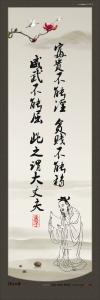 富贵不能淫 贫贱不能移
威武不能屈 此之谓大丈夫